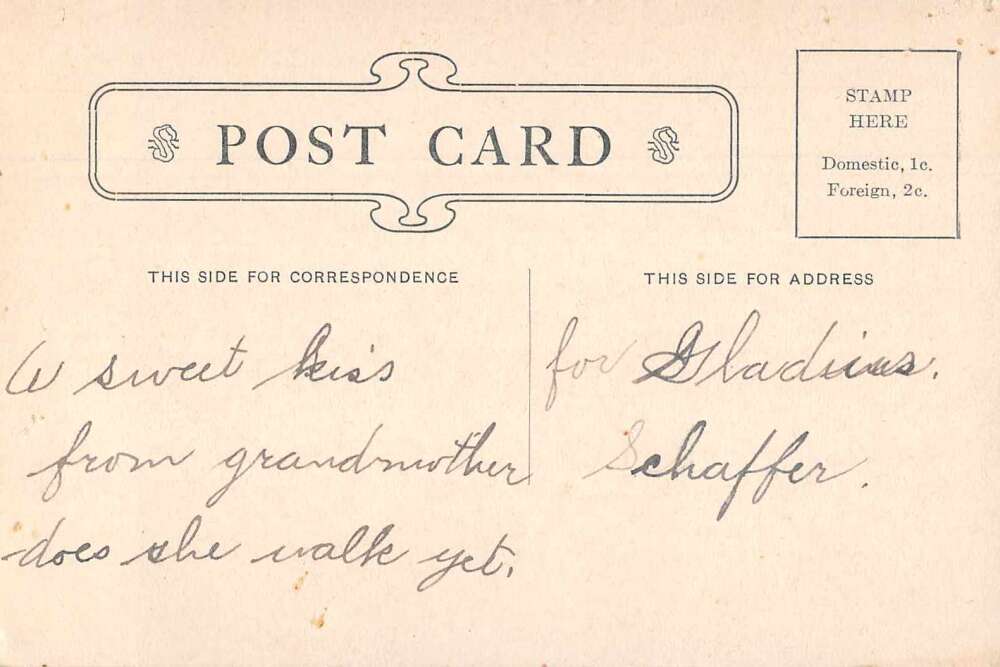 POST CARD
STAMP
HERE
Domestic, 1c.
Foreign, 2c.
THIS SIDE FOR CORRESPONDENCE
THIS SIDE FOR ADDRESS
a sweet kiss
from grandmother
does she walk yet.
for
Schaffer.